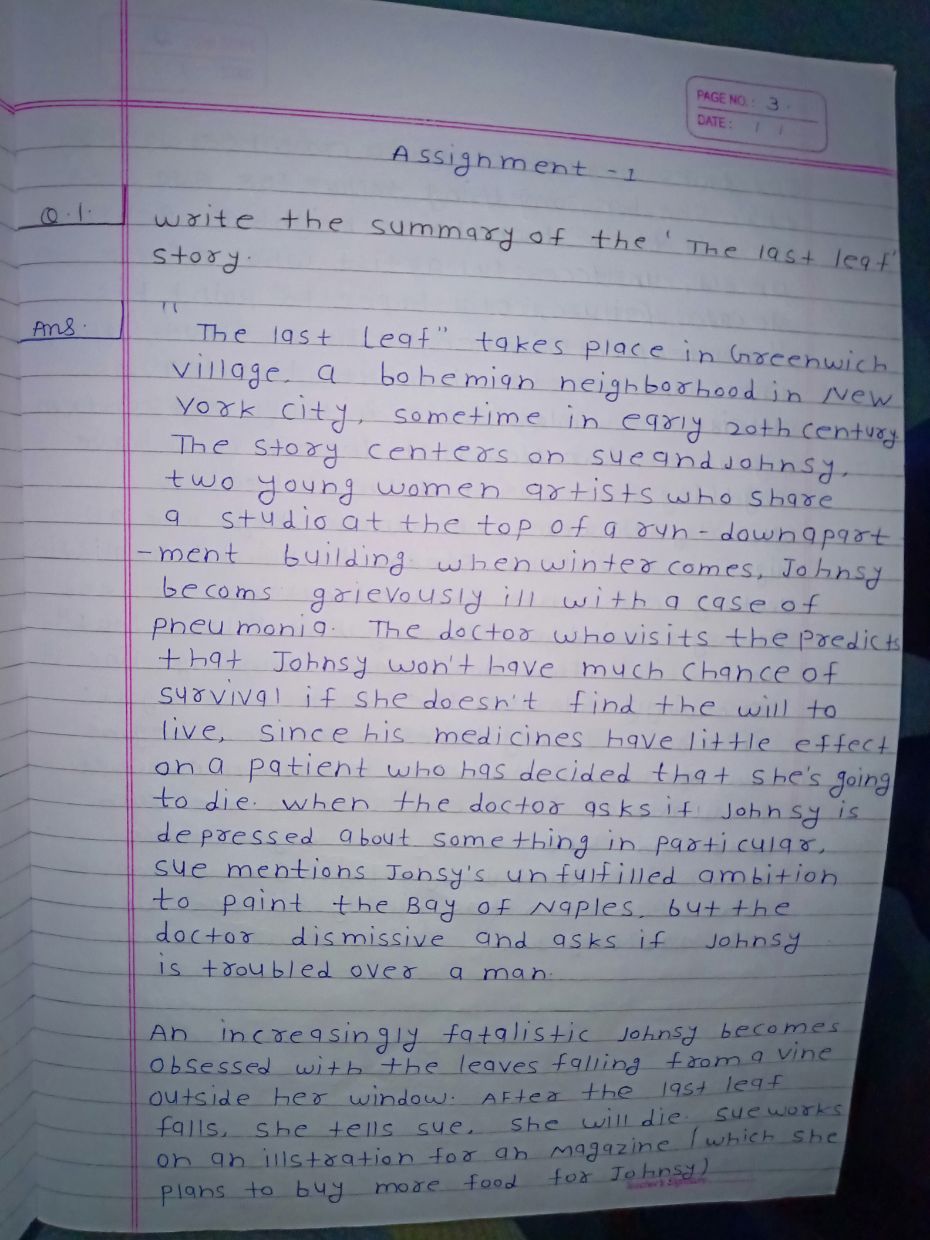 PAGE NO.: 3.
DATE: / /
Assignment - 1
Q.1. Write the summary of the 'The last leaf'
story.
Ans. "The last Leaf" takes place in Greenwich
village, a bohemian neighborhood in New
York city, sometime in early 20th century
The story centers on sue and Johnsy,
two young women artists who share
a studio at the top of a run-down apart
-ment building. when winter comes, Johnsy
becoms grievously ill with a case of
pneumonia. The doctor who visits the predicts
that Johnsy won't have much chance of
survival if she doesn't find the will to
live, since his medicines have little effect
on a patient who has decided that she's going
to die. when the doctor asks if Johnsy is
depressed about something in particular,
sue mentions Jonsy's unfulfilled ambition
to paint the Bay of Naples, but the
doctor dismissive and asks if Johnsy
is troubled over a man.
An increasingly fatalistic Johnsy becomes
obsessed with the leaves falling from a vine
outside her window. After the last leaf
falls, she tells sue, she will die. sue works
on an illstration for an magazine (which she
plans to buy more food for Johnsy)